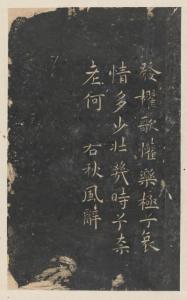 發櫂歌懽樂極兮哀
情多少壯幾時兮奈
老何　右秋風辭